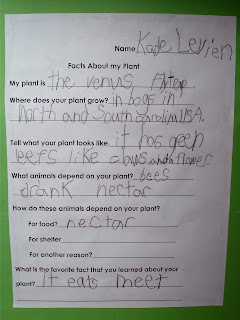 Name Kade Levien
Facts About my Plant
My plant is the venus, Flytrap
Where does your plant grow? in bogs in
North and South carolina USA.
Tell what your plant looks like. it has geen
leefs like claws and a flower
What animals depend on your plant? bees
drank nectar
How do these animals depend on your plant?
For food? nectar
For shelter
For another reason?
What is the favorite fact that you learned about your
plant? It eats meet